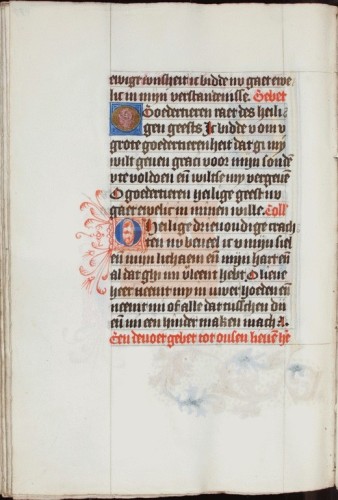 ewige wijsheit ic bidde nv gaet ewe
lic in mijn verstandenisse. Gebet
O Goedertieren raet des heili
gen geests Ic bidde v om v
grote goedertierenheit dat gi mij
wilt geuen graci voor mijn sonden
vte voldoen en̄ wiltse mij vergeuē
O goedertieren heilige geest nv
gaet ewelic in minen wille. Coll'
O Heilige drieuoudige
en nv beueel ic v mijn siel
en mijn lichaem en̄ mijn hart en̄
al dat ghi mi verleent hebt. O lieue
heer neemt mij in uwer hoeden en̄
neemt mi of alle dat tusschen di
en̄ mi een hinder maken mach A.
Een deuoet gebet tot onsen lieuen hr̄